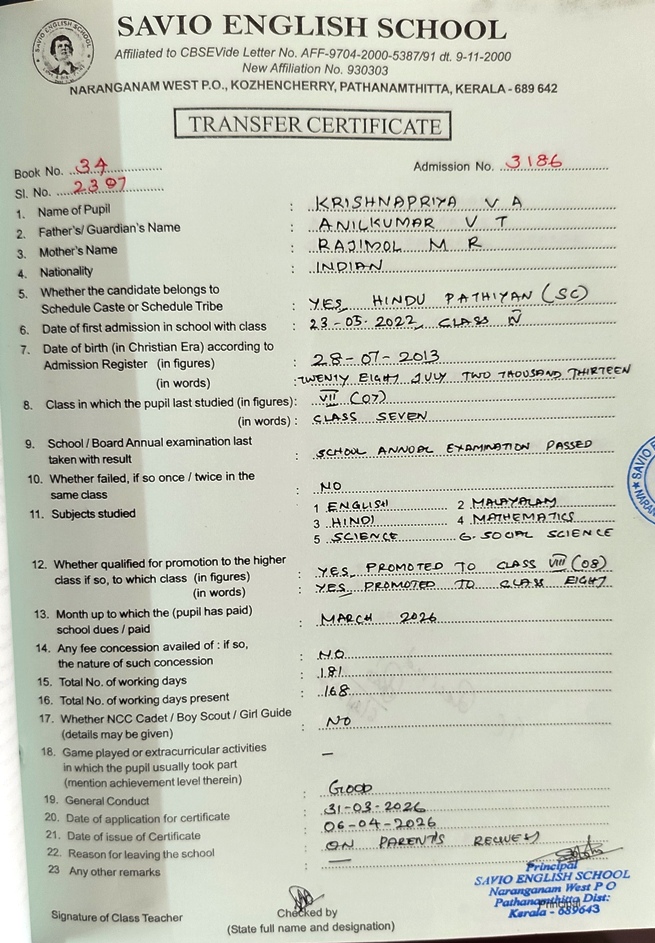 SAVIO ENGLISH SCHOOL
Affiliated to CBSEVide Letter No. AFF-9704-2000-5387/91 dt. 9-11-2000
New Affiliation No. 930303
NARANGANAM WEST P.O., KOZHENCHERRY, PATHANAMTHITTA, KERALA - 689 642
TRANSFER CERTIFICATE
Book No. 34 Admission No. 3186
Sl. No. 2397
1. Name of Pupil : KRISHNAPRIYA V A
2. Father's/ Guardian's Name : ANILKUMAR V T
3. Mother's Name : RAJIMOL M R
4. Nationality : INDIAN
5. Whether the candidate belongs to
Schedule Caste or Schedule Tribe : YES, HINDU PATHIYAN (SC)
6. Date of first admission in school with class : 23-05-2022, CLASS IV
7. Date of birth (in Christian Era) according to
Admission Register (in figures) : 28-07-2013
(in words) : TWENTY EIGHT JULY TWO THOUSAND THIRTEEN
8. Class in which the pupil last studied (in figures): VII (07)
(in words) : CLASS SEVEN
9. School / Board Annual examination last
taken with result : SCHOOL ANNUAL EXAMINATION PASSED
10. Whether failed, if so once / twice in the
same class : NO
11. Subjects studied : 1 ENGLISH 2 MALAYALAM
3 HINDI 4 MATHEMATICS
5 SCIENCE 6. SOCIAL SCIENCE
12. Whether qualified for promotion to the higher
class if so, to which class (in figures) : YES, PROMOTED TO CLASS VIII (08)
(in words) : YES, PROMOTED TO CLASS EIGHT
13. Month up to which the (pupil has paid)
school dues / paid : MARCH 2026
14. Any fee concession availed of : if so,
the nature of such concession : NO
15. Total No. of working days : 181
16. Total No. of working days present : 168
17. Whether NCC Cadet / Boy Scout / Girl Guide
(details may be given) : NO
18. Game played or extracurricular activities
in which the pupil usually took part : —
(mention achievement level therein)
19. General Conduct : GOOD
20. Date of application for certificate : 31-03-2026
21. Date of issue of Certificate : 06-04-2026
22. Reason for leaving the school : ON PARENTS REQUEST
23 Any other remarks : —
Principal
SAVIO ENGLISH SCHOOL
Naranganam West P O
Pathanamthitta Dist:
Kerala - 689643
Signature of Class Teacher Checked by
(State full name and designation)